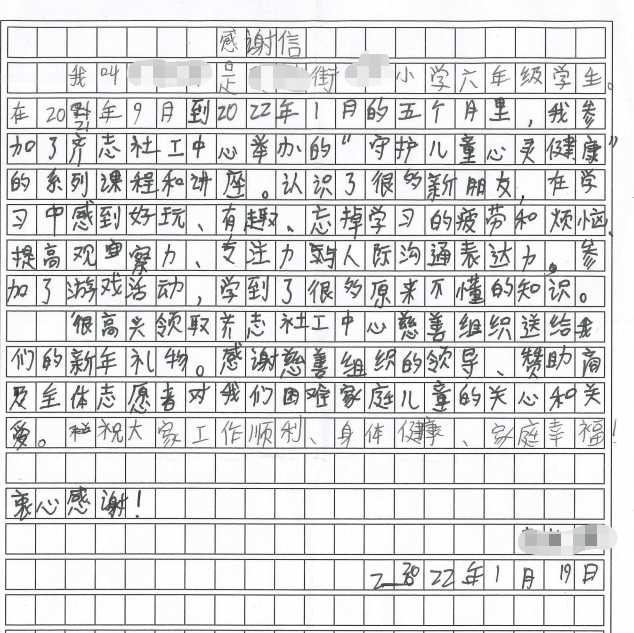 感谢信
我叫 是 街 小学六年级学生。
在2021年9月到2022年1月的五个月里，我参
加了齐志社工中心举办的“守护儿童心灵健康”
的系列课程和讲座。认识了很多新朋友，在学
习中感到好玩、有趣、忘掉学习的疲劳和烦恼、
提高观察力、专注力和人际沟通表达力。参
加了游戏活动，学到了很多原来不懂的知识。
很高兴领取齐志社工中心慈善组织送给我
们的新年礼物。感谢慈善组织的领导、赞助商
及全体志愿者对我们困难家庭儿童的关心和关
爱。祝大家工作顺利、身体健康、家庭幸福！
衷心感谢！
2022年1月19日